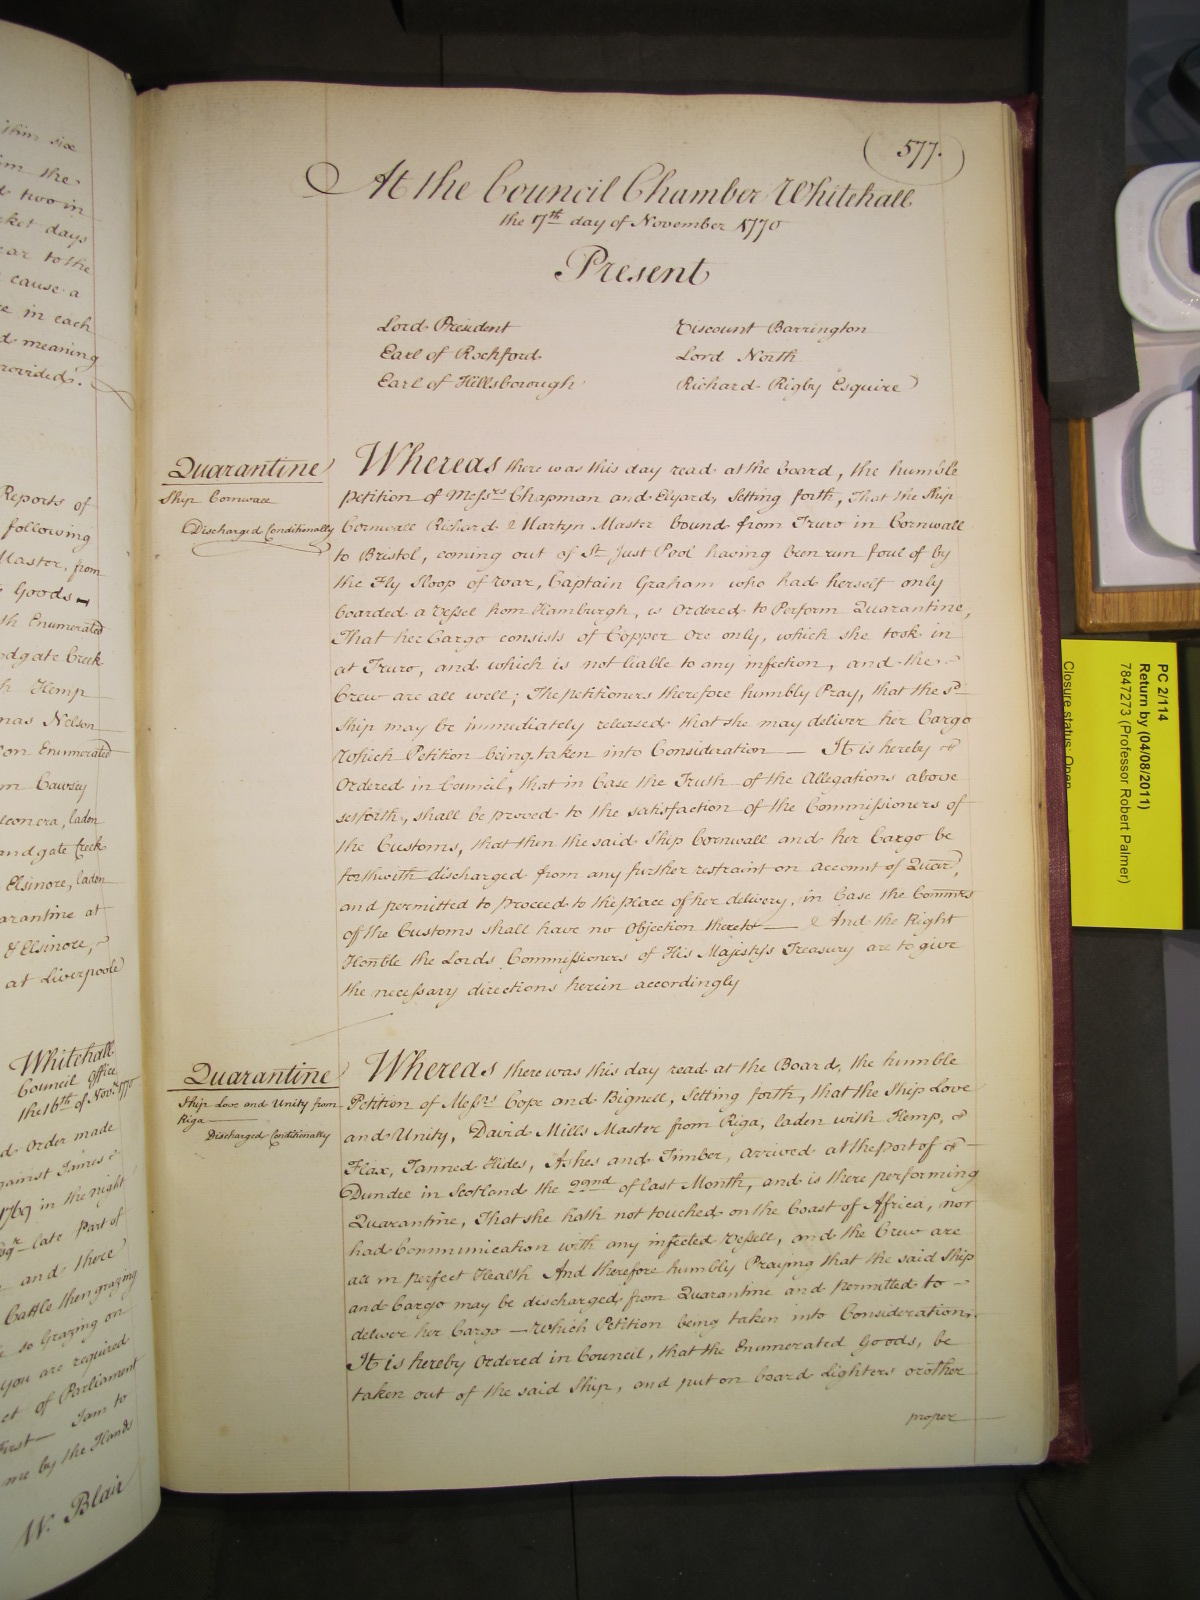 577.
At the Council Chamber Whitehall
the 17th day of November 1770
Present
Lord President
Earl of Rochford
Earl of Hillsborough
Viscount Barrington
Lord North
Richard Rigby Esquire
Quarantine
Ship Cornwall
Discharged Conditionally
Whereas there was this day read at the Board, the humble
Petition of Messrs Chapman and Elyard, Setting forth, That the Ship
Cornwall Richard Martyn Master bound from Truro in Cornwall
to Bristol, coming out of St Just Pool having been run foul of by
the Fly Sloop of War, Captain Graham who had herself only
boarded a Vessel from Hamburgh, is Ordered to Perform Quarantine,
That her Cargo consists of Copper Ore only, which she took in
at Truro, and which is not liable to any infection, and the
Crew are all well; The petitioners therefore humbly Pray, that the sd
Ship may be immediately released that she may deliver her Cargo
Which Petition being taken into Consideration — It is hereby
Ordered in Council, that in Case the Truth of the Allegations above
setforth, shall be proved to the satisfaction of the Commissioners of
the Customs, that then the said Ship Cornwall and her Cargo be
forthwith discharged from any further restraint on account of Quar,
and permitted to proceed to the place of her delivery, in Case the Commrs
of the Customs shall have no Objection thereto — And the Right
Honble the Lords Commissioners of His Majestys Treasury are to give
the necessary directions herein accordingly
Quarantine
Ship Love and Unity from
Riga
Discharged Conditionally
Whereas there was this day read at the Board, the humble
Petition of Messrs Cope and Bignell, Setting forth, that the Ship Love
and Unity, David Mills Master from Riga, laden with Hemp,
Flax, Tanned Hides, Ashes and Timber, arrived at the port of
Dundee in Scotland the 22nd of last Month, and is there performing
Quarantine, That she hath not touched on the Coast of Africa, nor
had Communication with any infected Vessell, and the Crew are
all in perfect Health And therefore humbly Praying that the said Ship
and Cargo may be discharged from Quarantine and permitted to —
deliver her Cargo — Which Petition being taken into Consideration.
It is hereby Ordered in Council, that the Enumerated Goods, be
taken out of the said Ship, and put on board Lighters or other
proper
him six
im the
two in
ket days
ear to the
cause a
in each
d meaning
rovided.
Reports of
following
Master, from
Goods
Enumerated
dgate Creek
Hemp
mas Nelson
on Enumerated
m Cawsey
laden
andgate Creek
Elsinore, laden
arantine at
Elsinore,
at Liverpoole
Whitehall
Council Office
the 16th of Novr 1770
d Order made
gainst James
1769 in the night
late Part of
and there
Cattle then grazing
so Grazing on
you are required
ct of Parliament
First — I am to
me by the Hands
W. Blair
PC 2/114
Return by (04/08/2011)
7847273 (Professor Robert Palmer)
Closure status: Open